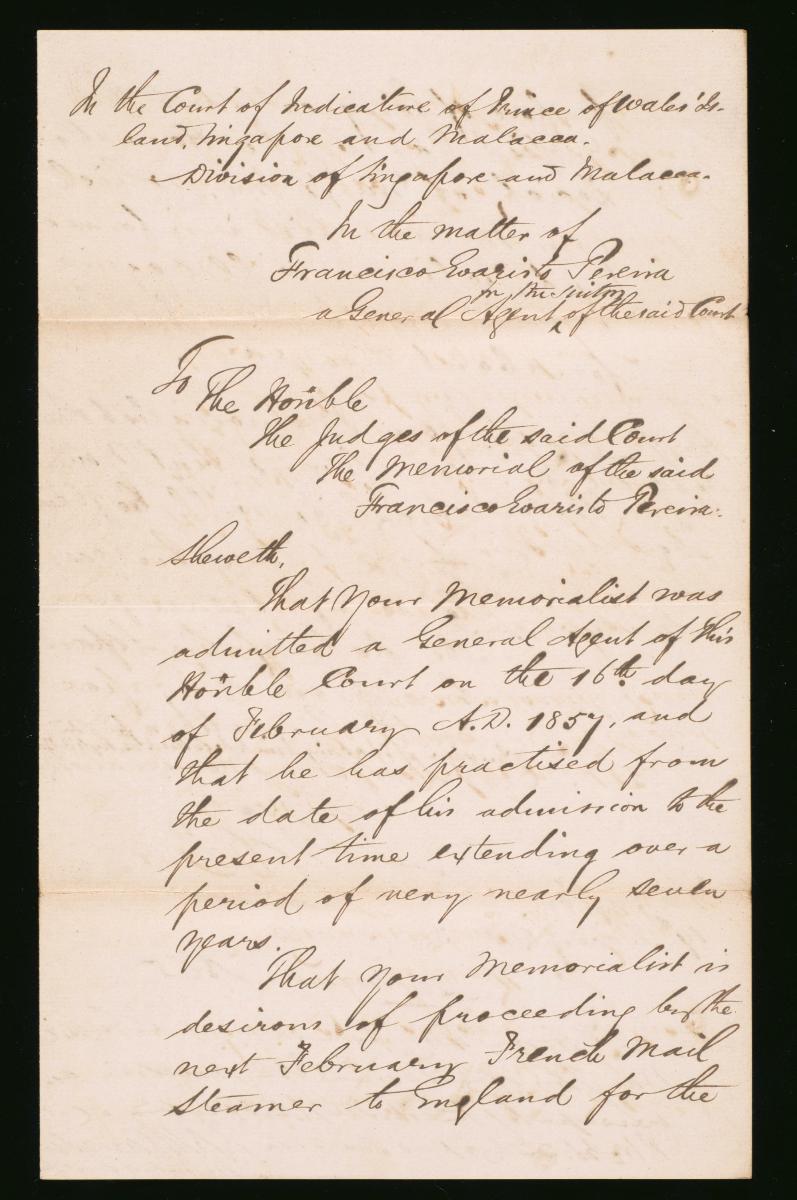 In the Court of Judicature of Prince of Wales' Is-
land, Singapore and Malacca.
Division of Singapore and Malacca.
In the matter of
Francisco Evaristo Pereira
for the Suitors
a General Agent ‸ of the said Court
To
The Hon'ble
The Judges of the said Court
The Memorial of the said
Francisco Evaristo Pereira.
Sheweth,
That Your Memorialist was
admitted a General Agent of this
Hon'ble Court on the 16th. day
of February A.D. 1857, and
that he has practised from
the date of his admission to the
present time extending over a
period of very nearly seven
years.
That your Memorialist is
desirous of proceeding by the
next February French Mail
Steamer to England for the